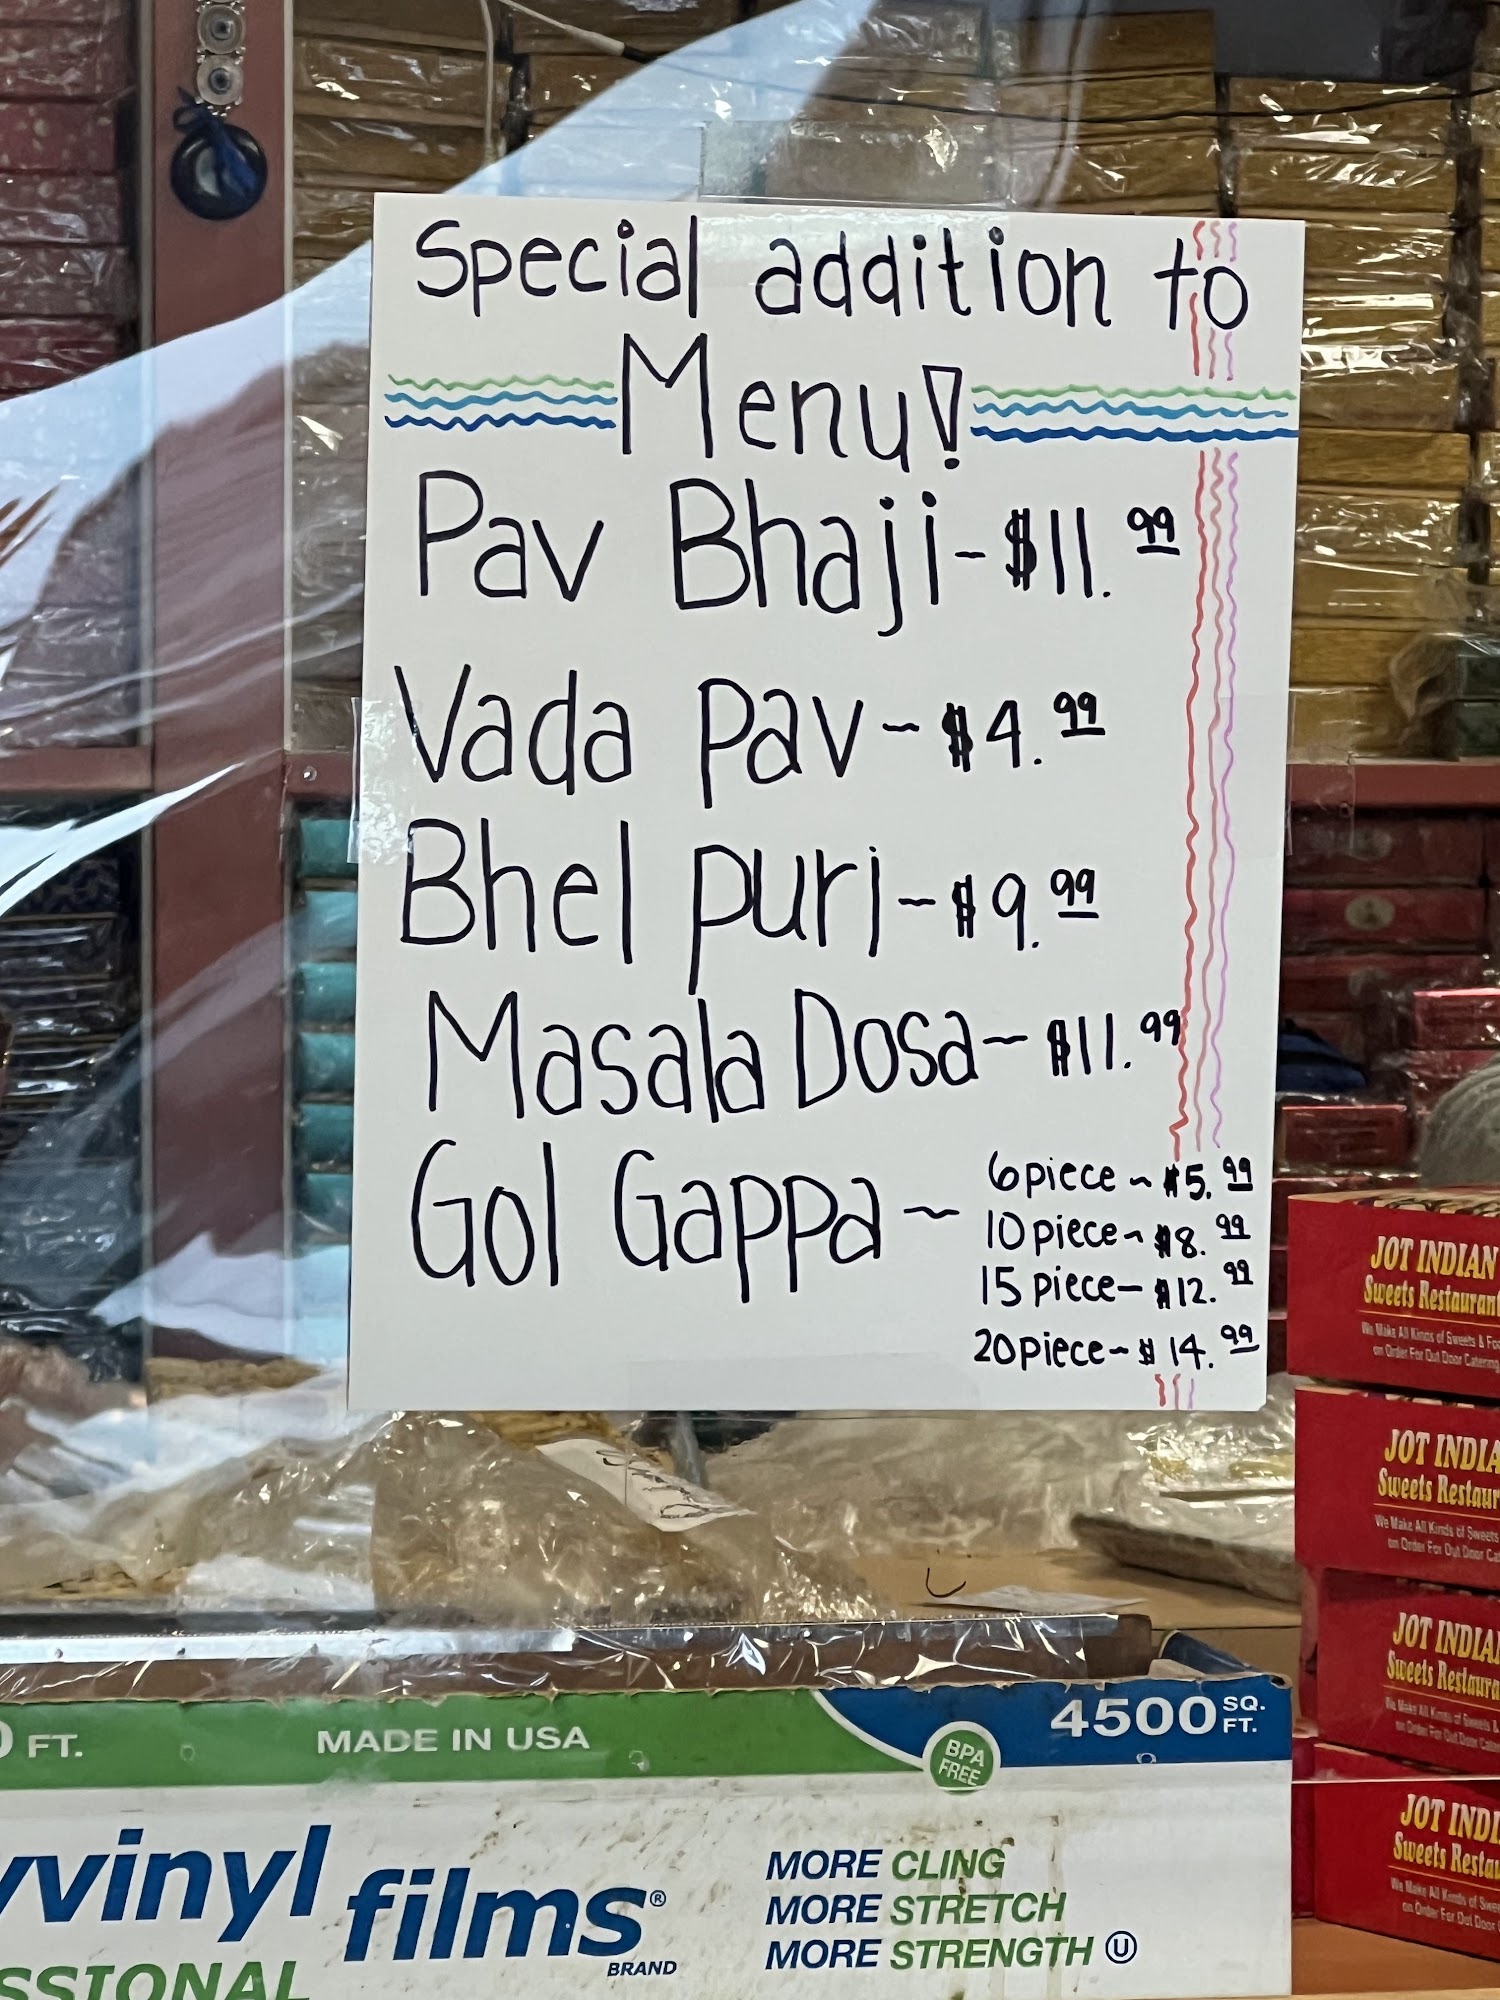 Special addition to
Menu!
Pav Bhaji - $11.99
Vada Pav - $4.99
Bhel puri - $9.99
Masala Dosa - $11.99
Gol Gappa -
6 piece - $5.99
10 piece - $8.99
15 piece - $12.99
20 piece - $14.99
JOT INDIAN
Sweets Restaurant
We Make All Kinds of Sweets & Fo
on Order For Out Door Catering
JOT INDIA
Sweets Restaur
We Make All Kinds of Sweets
on Order For Out Door Ca
JOT INDIA
Sweets Restaura
We Make All Kinds of Sweets &
on Order For Out Door Cate
JOT INDI
Sweets Restau
We Make All Kinds of Swee
on Order For Out Door
0 FT.
MADE IN USA
BPA
FREE
4500 SQ. FT.
vinyl films®
BRAND
SSIONAL
MORE CLING
MORE STRETCH
MORE STRENGTH U